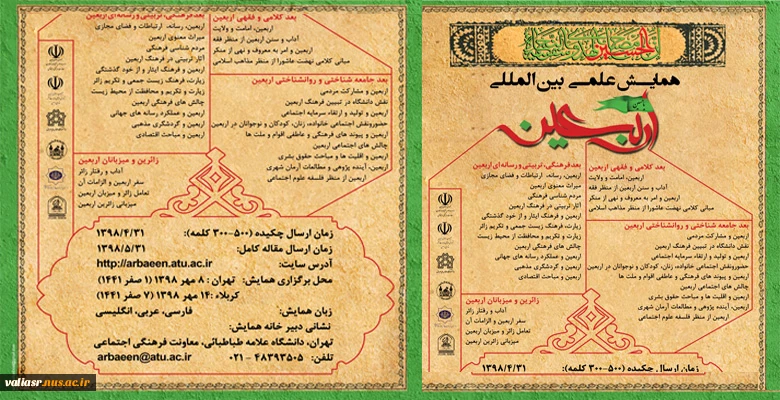 همایش علمی بین المللی
اربعین
بعد کلامی و فقهی اربعین
اربعین، امامت و ولایت
آداب و سنن اربعین از منظر فقه
اربعین و امر به معروف و نهی از منکر
مبانی کلامی نهضت عاشورا از منظر مذاهب اسلامی
بعد جامعه شناختی و روانشناختی اربعین
اربعین و مشارکت مردمی
نقش دانشگاه در تبیین فرهنگ اربعین
اربعین و تولید و ارتقاء سرمایه اجتماعی
حضورونقش اجتماعی خانواده، زنان، کودکان و نوجوانان در اربعین
اربعین و پیوند های فرهنگی و عاطفی اقوام و ملت ها
چالش های اجتماعی اربعین
اربعین و اقلیت ها و مباحث حقوق بشری
اربعین، آینده پژوهی و مطالعات آرمان شهری
اربعین از منظر فلسفه علوم اجتماعی
بعدفرهنگی، تربیتی و رسانه ای اربعین
اربعین، رسانه، ارتباطات و فضای مجازی
میراث معنوی اربعین
مردم شناسی فرهنگی
آثار تربیتی در فرهنگ اربعین
اربعین و فرهنگ ایثار و از خود گذشتگی
زیارت، فرهنگ زیست جمعی و تکریم زائر
زیارت و تکریم و محافظت از محیط زیست
چالش های فرهنگی اربعین
اربعین و عملکرد رسانه های جهانی
اربعین و گردشگری مذهبی
اربعین و مباحث اقتصادی
زائرین و میزبانان اربعین
آداب و رفتار زائر
سفر اربعین و الزامات آن
تعامل زائر و میزبان اربعین
میزبانی زائرین اربعین
زمان ارسال چکیده (۵۰۰-۳۰۰ کلمه): ۱۳۹۸/۴/۳۱
بعد کلامی و فقهی اربعین
اربعین، امامت و ولایت
آداب و سنن اربعین از منظر فقه
اربعین و امر به معروف و نهی از منکر
مبانی کلامی نهضت عاشورا از منظر مذاهب اسلامی
بعد جامعه شناختی و روانشناختی اربعین
اربعین و مشارکت مردمی
نقش دانشگاه در تبیین فرهنگ اربعین
اربعین و تولید و ارتقاء سرمایه اجتماعی
حضورونقش اجتماعی خانواده، زنان، کودکان و نوجوانان در اربعین
اربعین و پیوند های فرهنگی و عاطفی اقوام و ملت ها
چالش های اجتماعی اربعین
اربعین و اقلیت ها و مباحث حقوق بشری
اربعین، آینده پژوهی و مطالعات آرمان شهری
اربعین از منظر فلسفه علوم اجتماعی
بعدفرهنگی، تربیتی و رسانه ای اربعین
اربعین، رسانه، ارتباطات و فضای مجازی
میراث معنوی اربعین
مردم شناسی فرهنگی
آثار تربیتی در فرهنگ اربعین
اربعین و فرهنگ ایثار و از خود گذشتگی
زیارت، فرهنگ زیست جمعی و تکریم زائر
زیارت و تکریم و محافظت از محیط زیست
چالش های فرهنگی اربعین
اربعین و عملکرد رسانه های جهانی
اربعین و گردشگری مذهبی
اربعین و مباحث اقتصادی
زائرین و میزبانان اربعین
آداب و رفتار زائر
سفر اربعین و الزامات آن
تعامل زائر و میزبان اربعین
میزبانی زائرین اربعین
زمان ارسال چکیده (۵۰۰-۳۰۰ کلمه): ۱۳۹۸/۴/۳۱
زمان ارسال مقاله کامل: ۱۳۹۸/۵/۳۱
آدرس سایت: http://arbaeen.atu.ac.ir
محل برگزاری همایش: تهران : ۸ مهر ۱۳۹۸ (۱ صفر ۱۴۴۱)
کربلاء :۱۴ مهر ۱۳۹۸ (۷ صفر ۱۴۴۱)
زبان همایش: فارسی، عربی، انگلیسی
نشانی دبیر خانه همایش:
تهران، دانشگاه علامه طباطبائی، معاونت فرهنگی اجتماعی
تلفن: ۴۸۳۹۳۵۰۵ - ۰۲۱ arbaeen@atu.ac.ir
valiasr.nus.ac.ir